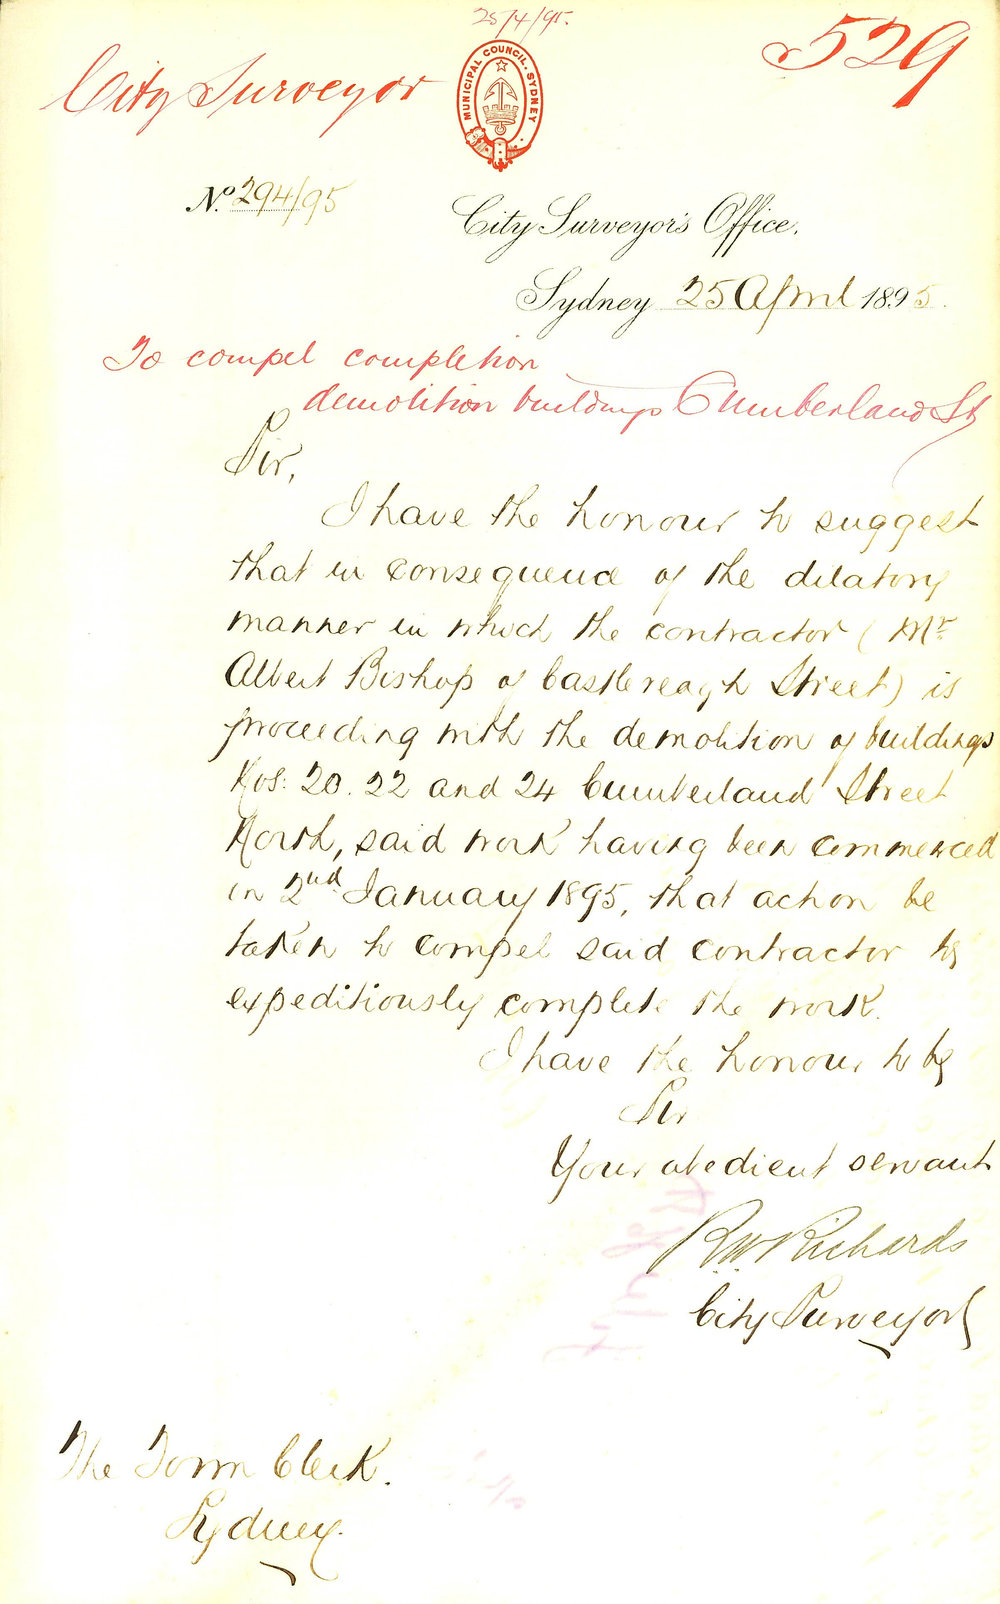 25/4/95.
City Surveyor
MUNICIPAL COUNCIL. SYDNEY
529
No. 294/95
City Surveyor's Office.
Sydney 25 April 1895.
To compel completion
demolition buildings Cumberland St
Sir,
I have the honour to suggest
that in consequence of the dilatory
manner in which the contractor (Mr
Albert Bishop of Castlereagh Street) is
proceeding with the demolition of buildings
Nos: 20. 22 and 24 Cumberland Street
North, said work having been commenced
in 2nd January 1895, that action be
taken to compel said contractor to
expeditiously complete the work.
I have the honour to be
Sir
Your obedient servant
R.W. Richards
City Surveyor
The Town Clerk.
Sydney.